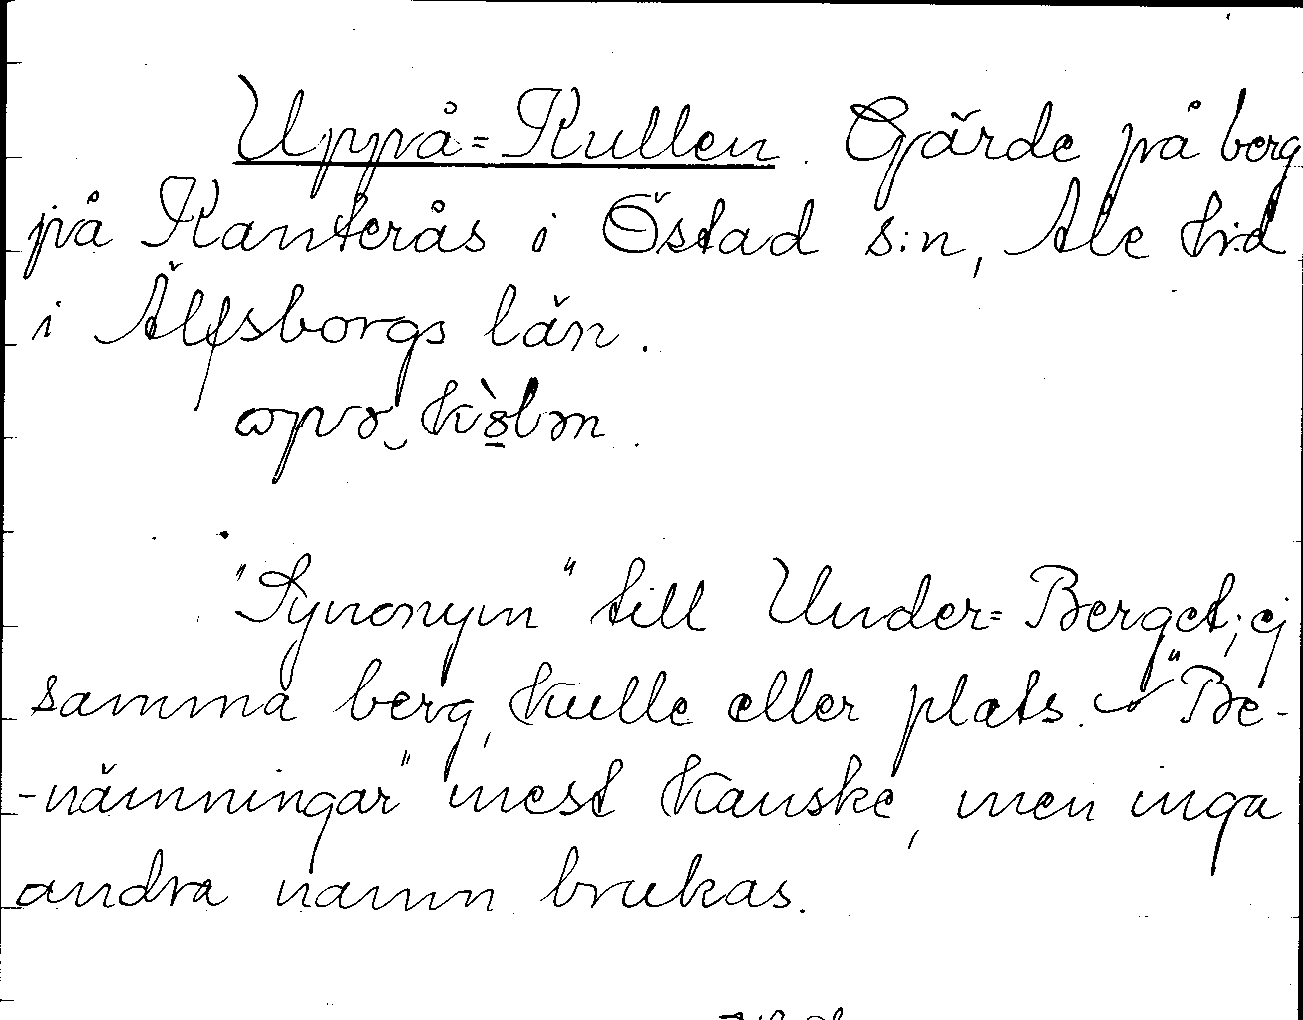 Uppå=Kullen. Gärde på berg
på Kanterås i Östad s:n, Ale h:d
i Älfsborgs län.
"Synonym" till Under=Berget; ej
samma berg, kulle eller plats. "Be-
-nämningar" mest kanske, men inga
andra namn brukas.